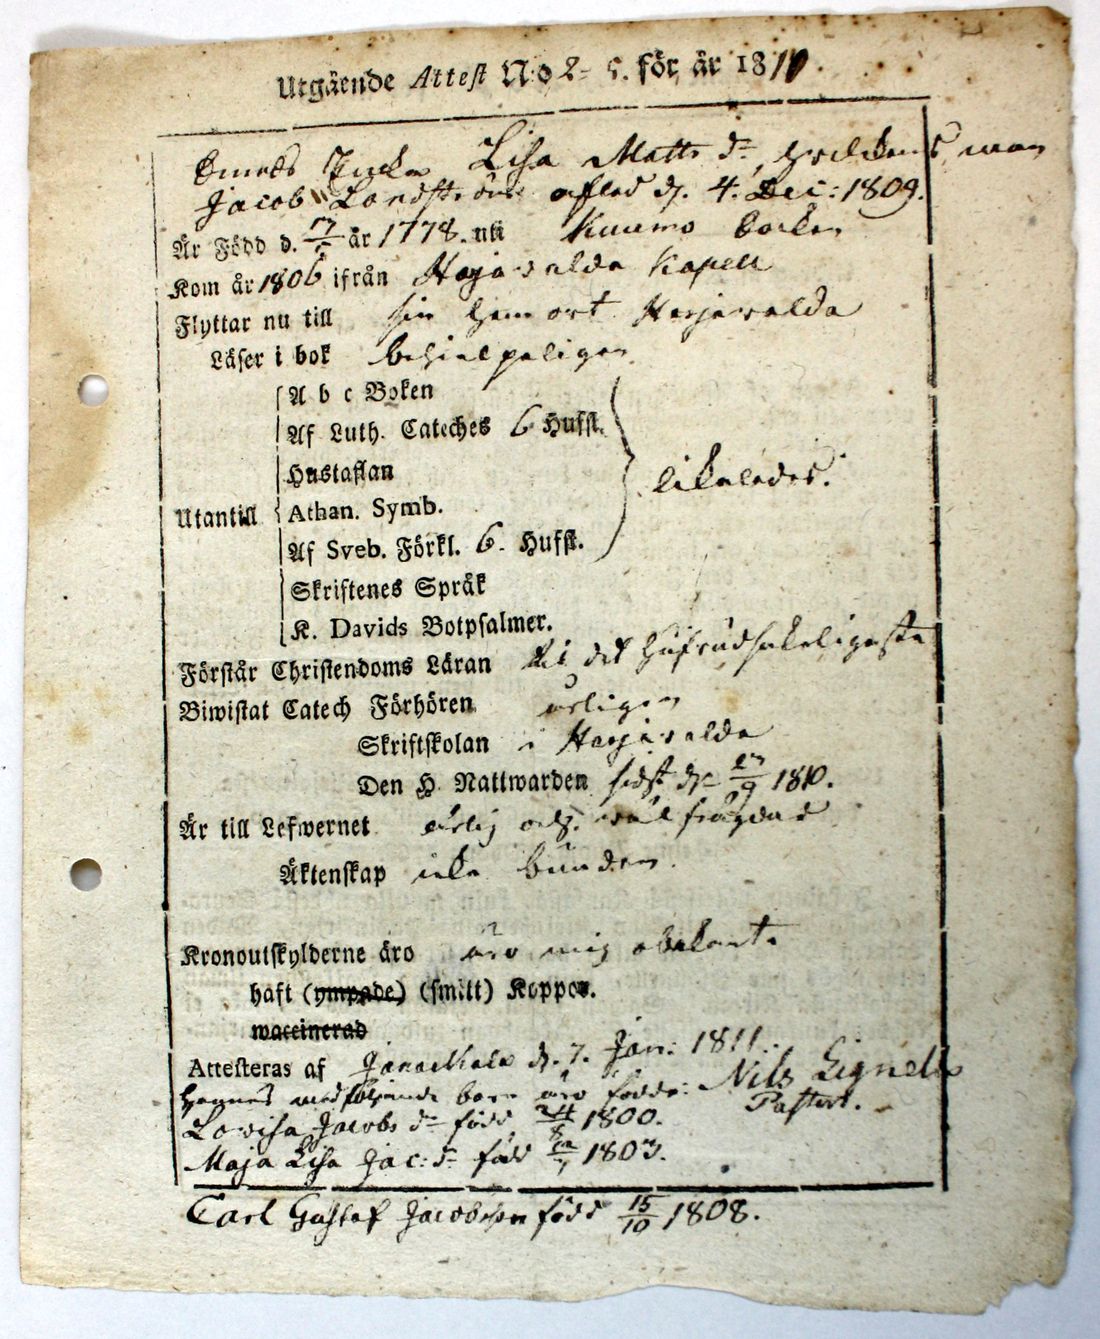 Utgående Attest N:o 2-5. för år 1811.
Enckan Lisa Matts dr, hvilckens man
Jacob Landström afled d. 4. Dec: 1809.
Är Född d. 17/ år 1778. uti Kuumo Socken
Kom år 1806 ifrån Harjavalda Kapell
Flyttar nu till sin hemort Harjavalda
Läser i bok behjelpeligen
A b c Boken
Af Luth. Cateches 6 Hufst.
Hustaflan
Utantill Athan. Symb. likaledes.
Af Sveb. Förkl. 6. Hufst.
Skriftenes Språk
K. Davids Botpsalmer.
Förstår Christendoms Läran til det hufvudsakeligaste
Biwistat Catech Förhören årligen
Skriftskolan i Harjavalda
Den H. Nattwarden sidst d. /9 1810.
Är till Lefwernet ärlig och välfrägdad
Äktenskap icke bunden.
Kronoutskylderne äro äro mig obekante
haft (ympade) (smitt) Koppor.
waccinerad
Attesteras af d. 7. Jan: 1811.
Hennes medföljande barn äro födde: Nils Lignell
Lovisa Jacobs dr född 24/8 1800. Pastor.
Maja Lisa Jac: dr född 1803.
Carl Gustaf Jacobsson född 15/10 1808.